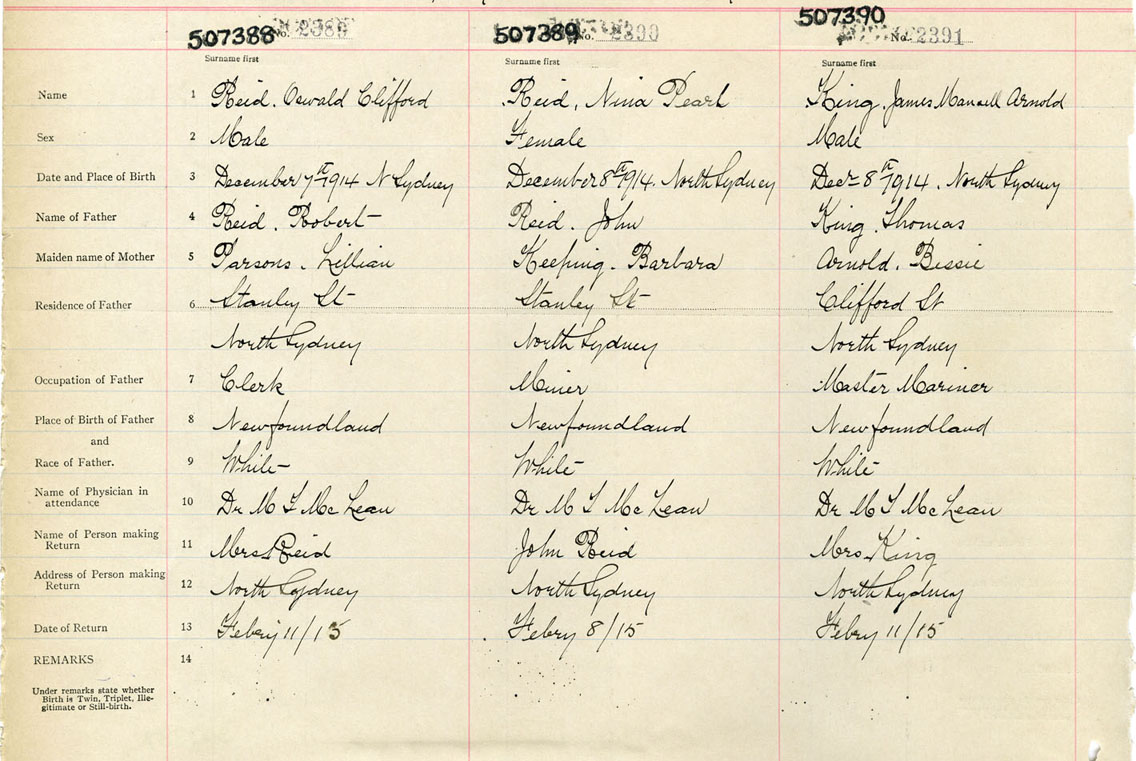 507388 No. 2389 507389 No. 2390 507390 No. 2391
Surname first Surname first Surname first
Name 1 Reid. Oswald Clifford Reid, Nina Pearl King, James Mansell Arnold
Sex 2 Male Female Male
Date and Place of Birth 3 December 7th 1914 N Sydney December 8th 1914. North Sydney Decr 8th 1914. North Sydney
Name of Father 4 Reid. Robert Reid. John King. Thomas
Maiden name of Mother 5 Parsons. Lillian Keeping. Barbara Arnold. Bessie
Residence of Father 6 Stanley St Stanley St Clifford St
North Sydney North Sydney North Sydney
Occupation of Father 7 Clerk Miner Master Mariner
Place of Birth of Father 8 Newfoundland Newfoundland Newfoundland
and
Race of Father. 9 White White White
Name of Physician in
attendance 10 Dr M T McLean Dr M T McLean Dr M T McLean
Name of Person making
Return 11 Mrs Reid John Reid Mrs King
Address of Person making
Return 12 North Sydney North Sydney North Sydney
Date of Return 13 Febry 11/15 Febry 8/15 Febry 11/15
REMARKS 14
Under remarks state whether
Birth is Twin, Triplet, Ille-
gitimate or Still-birth.